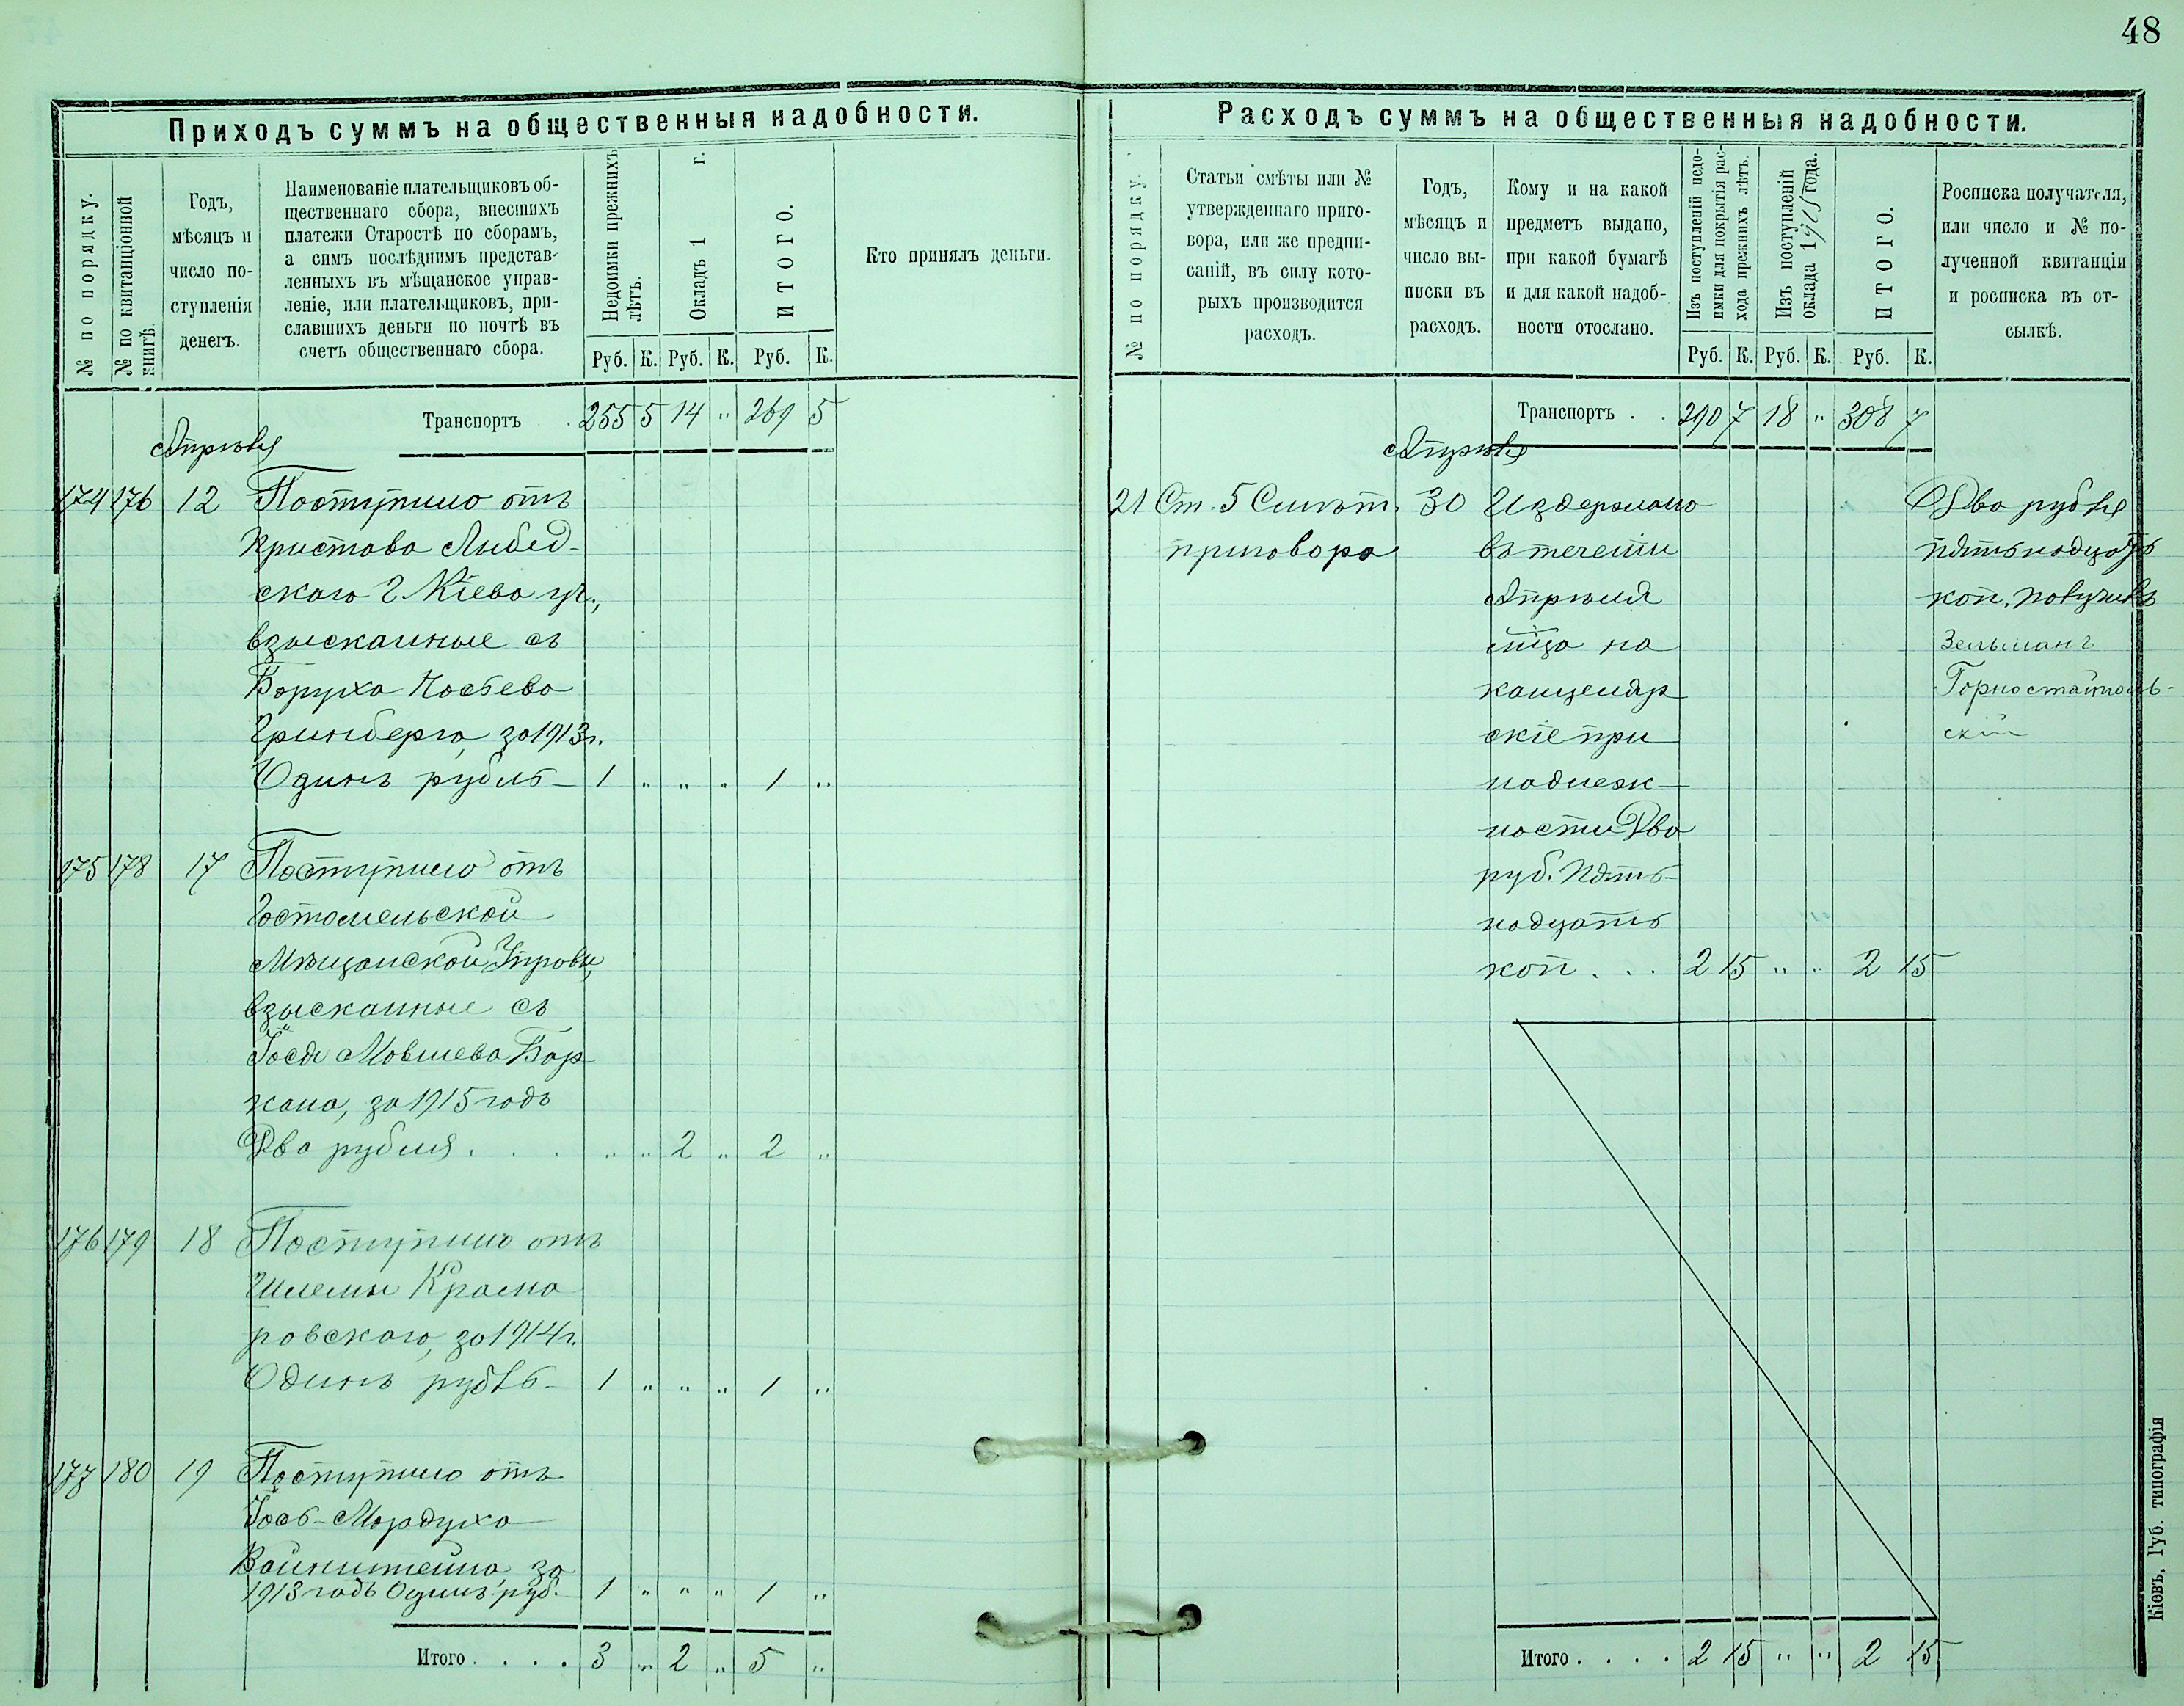 48
Приходъ суммъ на общественныя надобности.
№ по порядку.
№ по квитанціонной книгѣ.
Годъ,
мѣсяцъ и
число по-
ступленія
денегъ.
Наименованіе плательщиковъ об-
щественнаго сбора, внесшихъ
платежи Старостѣ по сборамъ,
а симъ послѣднимъ представ-
ленныхъ въ мѣщанское управ-
леніе, или плательщиковъ, при-
славшихъ деньги по почтѣ въ
счетъ общественнаго сбора.
Недоимки прежнихъ
лѣтъ.
Окладъ 1 г.
ИТОГО.
Руб. К. Руб. К. Руб. К.
Кто принялъ деньги.
Транспортъ . 255 5 14 " 269 5
Апрѣля
174 176 12 Поступило отъ
Пристава Лыбед-
скаго г. Кіева уч.,
взысканные съ
Боруха Іосева
Гринберга, за 1913 г.
Одинъ рубль - 1 " " " 1 "
175 178 17 Поступило отъ
Гостомельской
Мѣщанской Управы,
взысканные съ
Іося Мовшева Бар-
кана, за 1915 годъ
Два рубля . . . " " 2 " 2 "
176 179 18 Поступило отъ
Шлемы Крама
ровскаго, за 1914 г.
Одинъ рубль - 1 " " " 1 "
177 180 19 Поступило отъ
Іось-Мордуха
Вайнштейна, за
1913 годъ Одинъ руб. 1 " " " 1 "
Итого . . . . 3 " 2 " 5 "
Расходъ суммъ на общественныя надобности.
№ по порядку.
Статьи смѣты или №
утвержденнаго приго-
вора, или же предпи-
саній, въ силу кото-
рыхъ производится
расходъ.
Годъ,
мѣсяцъ и
число вы-
писки въ
расходъ.
Кому и на какой
предметъ выдано,
при какой бумагѣ
и для какой надоб-
ности отослано.
Изъ поступленій недо-
имки для покрытія рас-
хода прежнихъ лѣтъ.
Изъ поступленій
оклада 1915 года.
ИТОГО.
Руб. К. Руб. К. Руб. К.
Росписка получателя,
или число и № по-
лученной квитанціи
и росписка въ от-
сылкѣ.
Транспортъ . . 290 7 18 " 308 7
Апрѣля
21 Ст. 5 Смѣт. 30 Издержано Два рубля
приговора въ теченіи пятьнадцать
Апрѣля коп. получилъ
м-ца на Зельманъ
канцеляр Горностайполь-
скіе при скій
надлеж-
ности Два
руб. Пять-
надцать
коп . . . 2 15 " " 2 15
Итого . . . . 2 15 " " 2 15
Кіевъ, Губ. типографія